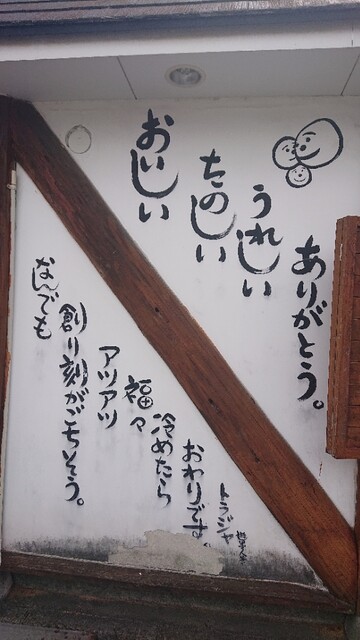 ありがとう。
うれしい
たのしい
おいしい
トラジャ
おわりです。
冷めたら
福々
アツアツ
創り刻がごちそう。
なんでも